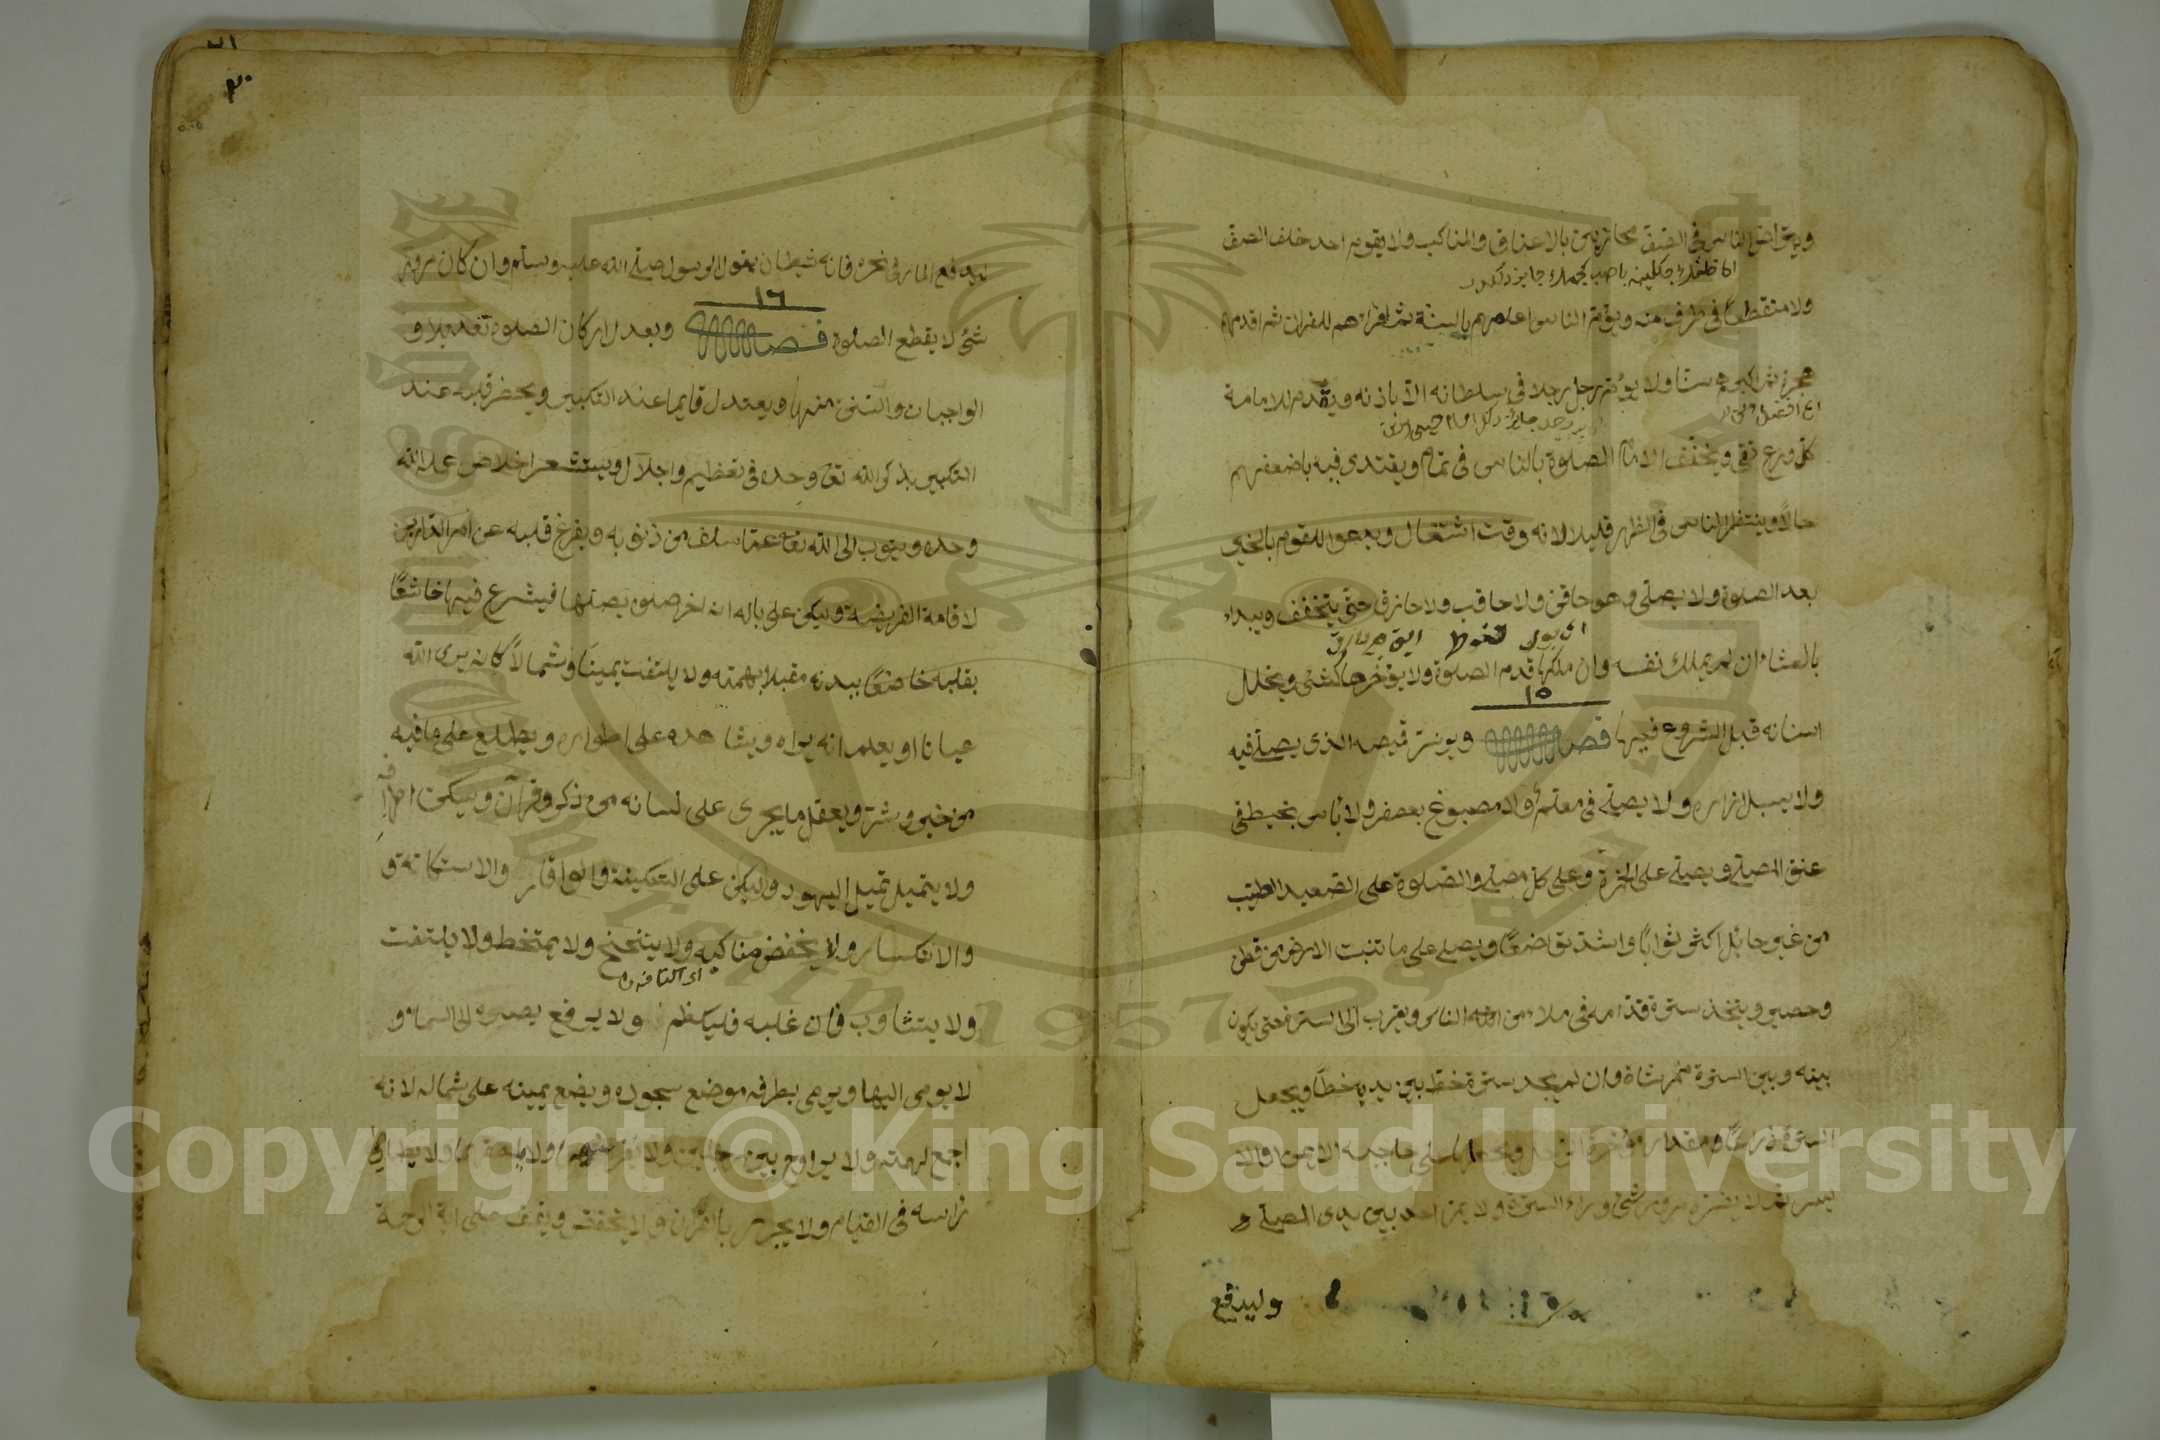 ويتراص الناس في الصف محاذين بالاعناق والمناكب ولا يقوم احد خلف الصف
ولا منقطعا في طرف منه ويؤم الناس اعلمهم بالسنة ثم اقراهم للقران ثم اقدمهم
هجرة ثم اكبرهم سنا ولا يؤم رجل رجلا في سلطانه الا باذنه ويقدم للامامة
اى افضل
كل ورع تقي ويخفف الامام الصلوة بالناس في تمام ويقتدى فيه باضعفهم
حالا وينتظر الناس في الظهر قليلا لانه وقت اشتغال ويدعوا للقوم بالخير
بعد الصلوة ولا يصلي وهو حاقن ولا حاقب ولا حازق حتى يتخفف ويبداء
اى بول
بالعشاء ان لم يملك نفسه وان ملكها قدم الصلوة ولا يؤخرها لشئ ويخلل
١٥
اسنانه قبل الشروع فيها فصل ويوتر قميصه الذى يصلي فيه
ولا يسبل ازاره ولا يصلي في معلم ولا مصبوغ بعصفر ولا باس بخيط في
عنق المصلي ويصلي على الخمرة وعلى كل مصلي والصلوة على الصعيد الطيب
من غير حائل اكثر ثوابا واشد تواضعا ويصلي على ما تنبت الارض من قطن
وحصير ويتخذ سترة قدامه في ملاء من الناس ويقرب الى السترة حتى يكون
بينه وبين السترة ممر شاة وان لم يجد سترة خط بين يديه خطا ويجعل
السترة ذراعا ومقدار مؤخرة الرحل ويجعلها على حاجبه الايمن او الا
يسر ثم لا يضره مرور شئ وراء السترة ولا يمر احد بين يدى المصلي و
وليدفع
٣٠
ليدفع المار في نحره فانه شيطان بقول الرسول صلى الله عليه وسلم وان كان مرور
١٦
شئ لا يقطع الصلوة فصل ويعدل اركان الصلوة تعديلا و
الواجبات والسنن منها ويعتدل قايما عند التكبير ويحضر قلبه عند
التكبير بذكر الله تعالى وحده في تعظيم واجلال ويستشعر اخلاص عمله لله
وحده ويتوب الى الله تعالى عما سلف من ذنوبه ويفرغ قلبه عن امر الدارين
لاقامة الفريضة وليكن على باله انه اخر صلوة يصليها فيشرع فيها خاشعا
بقلبه خاضعا ببدنه مقبلا بهمته ولا يلتفت يمينا وشمالا كانه يرى الله
عيانا او يعلم انه يراه ويشاهده على اطواره ويطلع على ما فيه
من خير وشر ويعقل ما يجرى على لسانه من ذكر وقرآن ويسكن اطرافه
ولا يتميل تميل اليهود وليكن على السكينة والوقار والاستكانة و
والانكسار ولا يخفض مناكبه ولا يتنحنح ولا يمتخط ولا يلتفت
ولا يتثاوب فان غلبه فليكظم ولا يرفع بصره الى السماء و
لا يومى اليها ويرمى بطرفه موضع سجوده ويضع يمينه على شماله لانه
اجمع لهمته ولا يراوح بين رجلين ولا
راسه في القيام ولا يجرمر بالقرآن ولا يخفت ويقف على اية الرحمة
Copyright © King Saud University
1957